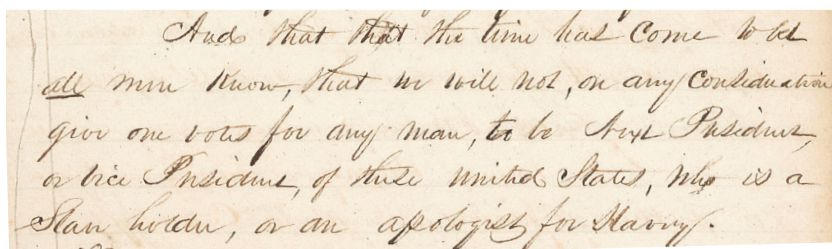 And that that the time has come to let
all men know, that we will not, on any consideration
give our votes for any man, to be Next President,
or vice President, of these united States, who is a
Slave holder, or an apologist for Slavery.